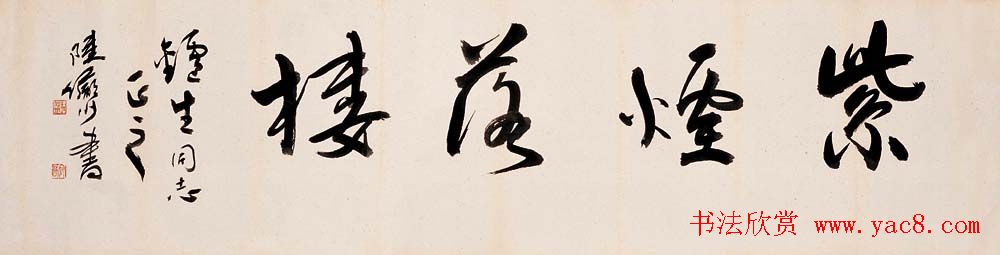 紫煙落楼
鑪生同志
正之
陸儼少書
书法欣赏 www.yac8.com